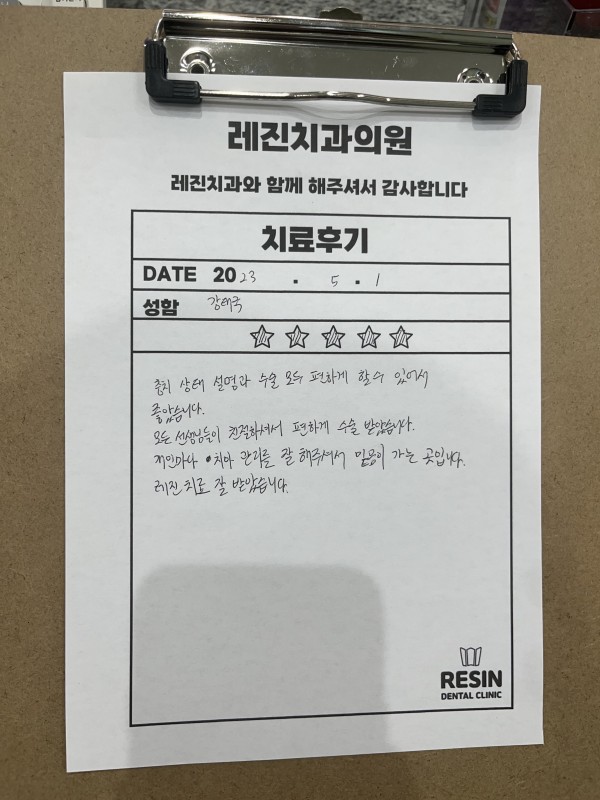 레진치과의원
레진치과와 함께 해주셔서 감사합니다
치료후기
DATE 2023 . 5 . 1
성함 강태국
충치 상태 설명과 수술 모두 편하게 할수 있어서
좋았습니다.
모든 선생님들이 친절하셔서 편하게 수술 받았습니다.
개인마다 치아 관리를 잘 해주셔서 믿음이 가는 곳입니다.
레진 치료 잘 받았습니다.
RESIN
DENTAL CLINIC